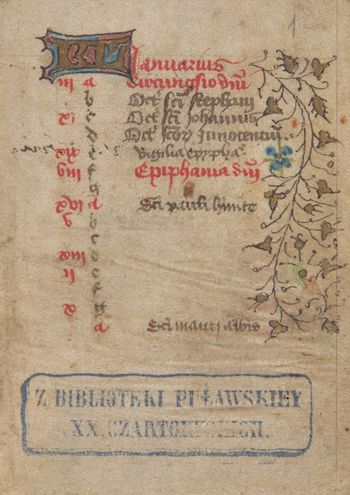 1
KL Januarius
iii a Circumcisio dni
b Oct sci stephani
xi c Oct sci Johannis
d Oct scor Innocentiu
xix e Vigilia epypha
viii f Epiphania dni
g
xvi a Sci pauli
v b
c
xiii d
ii e
f
x g
a Sci mauri abbis
Z BIBLIOTEKI PUŁAWSKIEY
XX. CZARTORYSKICH.